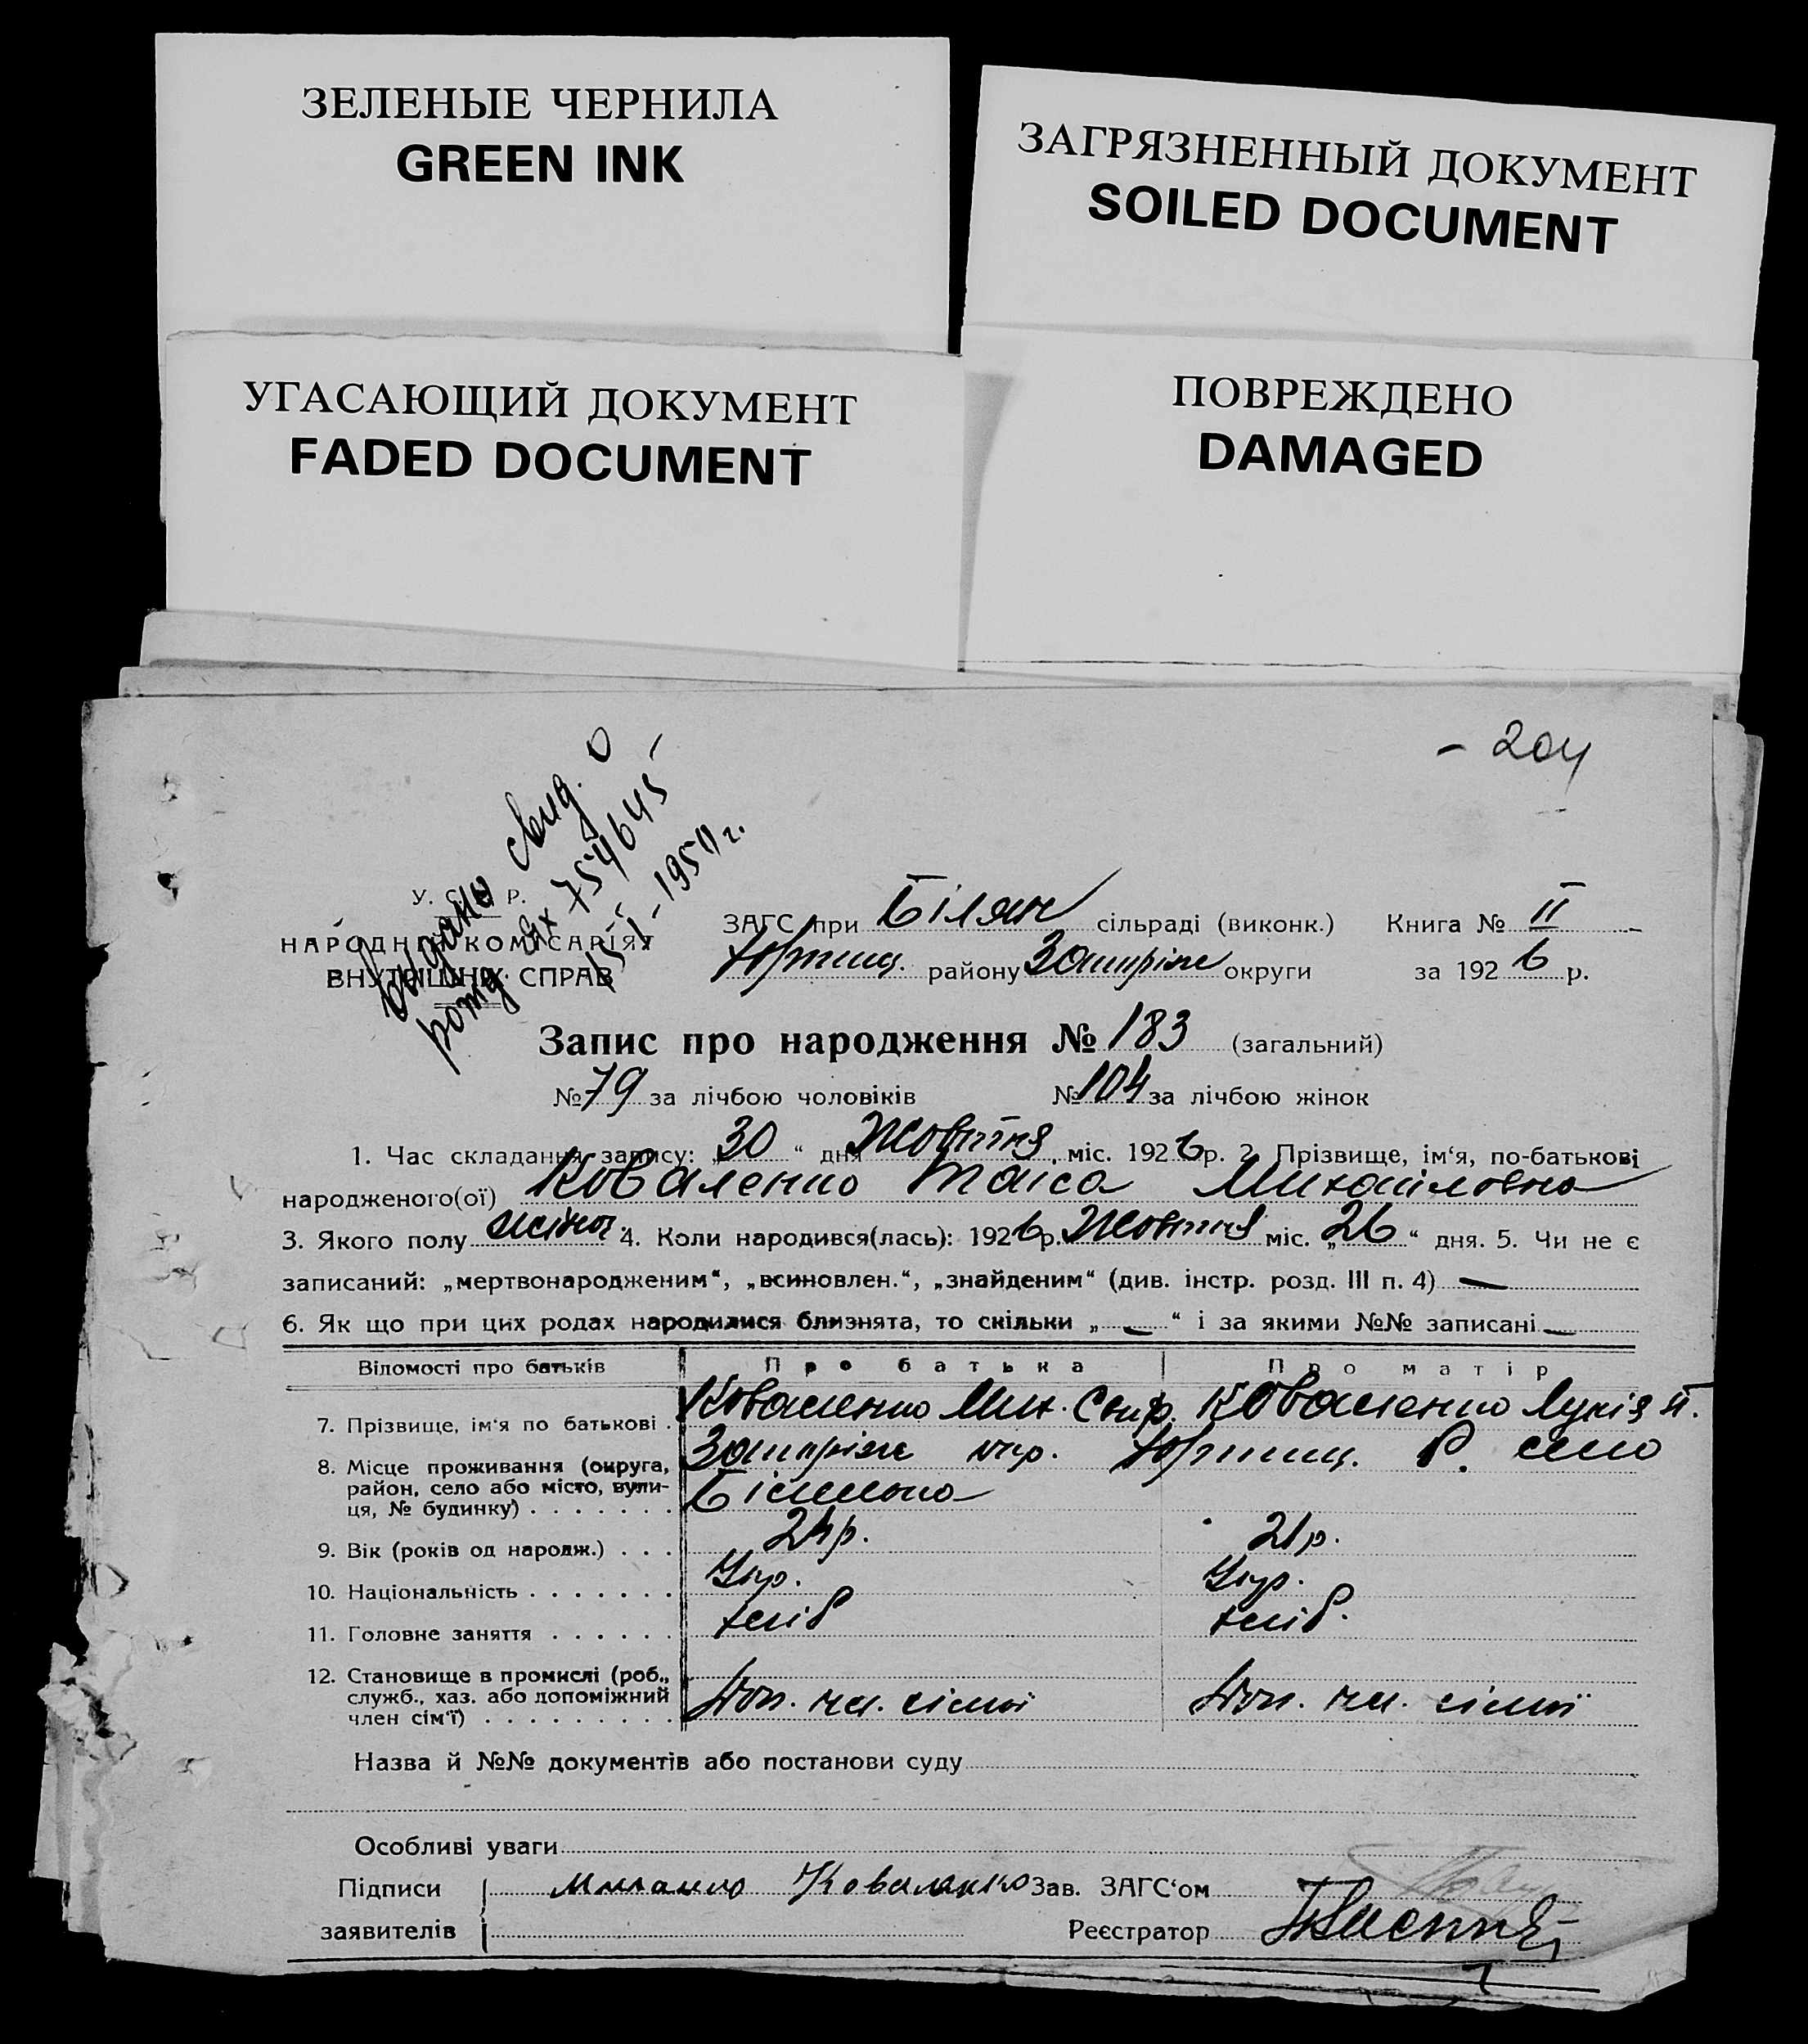 ЗЕЛЕНЫЕ ЧЕРНИЛА
GREEN INK
ЗАГРЯЗНЕННЫЙ ДОКУМЕНТ
SOILED DOCUMENT
УГАСАЮЩИЙ ДОКУМЕНТ
FADED DOCUMENT
ПОВРЕЖДЕНО
DAMAGED
- 204
Выдано свид. о
рожд. 754645
15-I-1950 г.
У. С. Р. Р.
НАРОДНІЙ КОМІСАРІЯТ
ВНУТРІШНІХ СПРАВ
ЗАГС при Білян сільраді (виконк.) Книга № II
Хортиц. району Запоріж округи за 1926 р.
Запис про народження № 183 (загальний)
№ 79 за лічбою чоловіків № 104 за лічбою жінок
1. Час складання запису: „30“ дня Жовтня міс. 1926 р. 2. Прізвище, ім‘я, по-батькові
народженого(ої) Коваленко Таіса Михайловна
3. Якого полу жіноч. 4. Коли народився(лась): 1926 р. Жовтня міс. „26“ дня. 5. Чи не є
записаний: „мертвонародженим“, „всиновлен.“, „знайденим“ (див. інстр. розд. III п. 4) —
6. Як що при цих родах народилися близнята, то скільки „—“ і за якими №№ записані —
Відомості про батьків Про батька Про матір
7. Прізвище, ім‘я по батькові . Коваленко Мих. Коваленко Лукія
8. Місце проживання (округа, Запоріж окр. Хортиц. Р. село
район, село або місто, вули- Біленько
ця, № будинку) . . . . . . .
9. Вік (років од народж.) . . . 24 р. 21 р.
10. Національність . . . . . . . Укр. Укр.
11. Головне заняття . . . . . . хліб хліб.
12. Становище в промислі (роб.,
служб., хаз. або допоміжний Доп. чл. сімьї Доп. чл. сімьї
член сім‘ї) . . . . . . . . .
Назва й №№ документів або постанови суду
Особливі уваги
Підписи Михайло Коваленко Зав. ЗАГС‘ом
заявителів Реєстратор